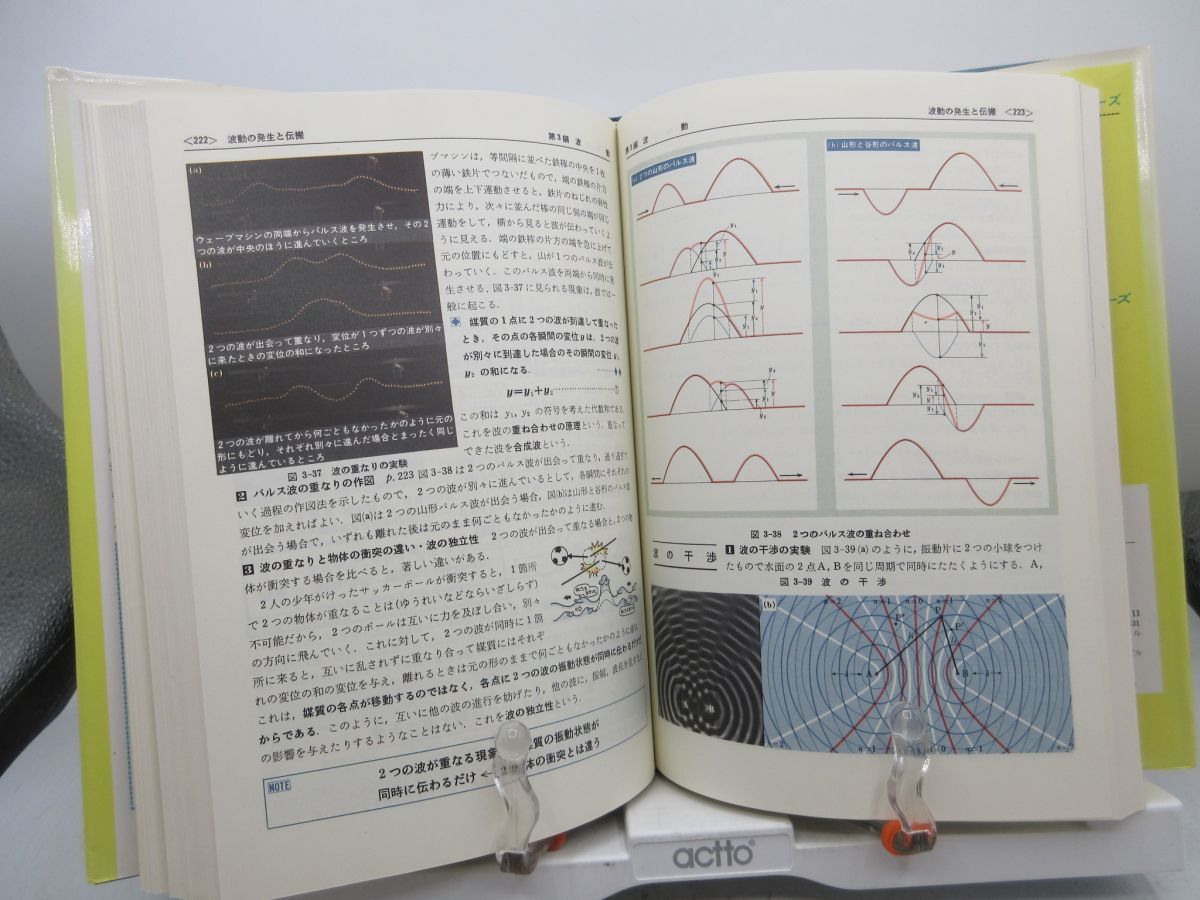 <222> 波動の発生と伝搬
第3編 波 動
(a)
ウェーブマシンの両端からパルス波を発生させ,その2
つの波が中央のほうに進んでいくところ
(b)
2つの波が出会って重なり,変位が1つずつの波が別々
に来たときの変位の和になったところ
(c)
2つの波が離れてから何ごともなかったかのように元の
形にもどり,それぞれ別々に進んだ場合とまったく同じ
ように進んでいるところ
図 3-37 波の重なりの実験
ブマシンは,等間隔に並べた鉄棒の中央を1枚
の薄い鉄片でつないだもので,端の鉄棒の片方
の端を上下運動させると,鉄片のねじれの弾性
力により,次々に並んだ棒の同じ側の端が同じ
運動をして,横から見ると波が伝わっていくよ
うに見える.端の鉄棒の片方の端を急に上げて
元の位置にもどすと,山が1つのパルス波が伝
わっていく.このパルス波を両端から同時に発
生させる.図3-37に見られる現象は,波では一
般に起こる.
媒質の1点に2つの波が到達して重なった
とき,その点の各瞬間の変位yは,2つの波
が別々に到達した場合のその瞬間の変位y₁,
y₂ の和になる.
y=y₁+y₂ ①
この和は y₁, y₂ の符号を考えた代数和である.
これを波の重ね合わせの原理という.重なって
できた波を合成波という.
2 パルス波の重なりの作図 p.223 図3-38は2つのパルス波が出会って重なり,通り過ぎて
いく過程の作図法を示したもので,2つの波が別々に進んでいるとして,各瞬間にそれぞれの
変位を加えればよい.図(a)は2つの山形パルス波が出会う場合,図(b)は山形と谷形のパルス波
が出会う場合で,いずれも離れた後は元のまま何ごともなかったかのように進む.
3 波の重なりと物体の衝突の違い・波の独立性 2つの波が出会って重なる場合と,2つの物
体が衝突する場合を比べると,著しい違いがある.
2人の少年がけったサッカーボールが衝突すると,1箇所
で2つの物体が重なることは(ゆうれいなどならいざしらず)
不可能だから,2つのボールは互いに力を及ぼし合い,別々
の方向に飛んでいく.これに対して,2つの波が同時に1箇
所に来ると,互いに乱されずに重なり合って媒質にはそれぞ
れの変位の和の変位を与え,離れるときは元の形のままで何ごともなかったかのように進む.
これは,媒質の各点が移動するのではなく,各点に2つの波の振動状態が同時に伝わるだけだ
からである.このように,互いに他の波の進行を妨げたり,他の波に,振幅,波長を変えるなど
の影響を与えたりするようなことはない.これを波の独立性という.
NOTE
2つの波が重なる現象 質の振動状態が
同時に伝わるだけ ← 2 体の衝突とは違う
第3編 波 動
波動の発生と伝搬 <223>
(a) 2つの山形のパルス波
(b) 山形と谷形のパルス波
図 3-38 2つのパルス波の重ね合わせ
波 の 干 渉
1 波の干渉の実験 図3-39(a)のように,振動片に2つの小球をつけ
たもので水面の2点A,Bを同じ周期で同時にたたくようにする.A,
図 3-39 波 の 干 渉
A B
(b)
n=2 n=1 n=0 n=1 n=2
P P' P''
A B
n=2 n=1 n=0 n=1 n=2
actto